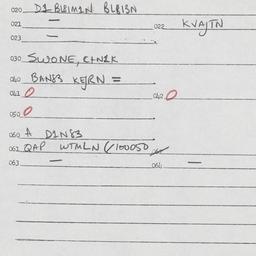 020 D1-BL8IM1N BLBI3N
021 —
022 KVAJTN
023 —
030 SWONE, C+N1K
040 BAN83 KEJRN =
041 0
042 0
050 0
060 A D1N83
061 QAP WTMLN (/100050
063 —
064 —